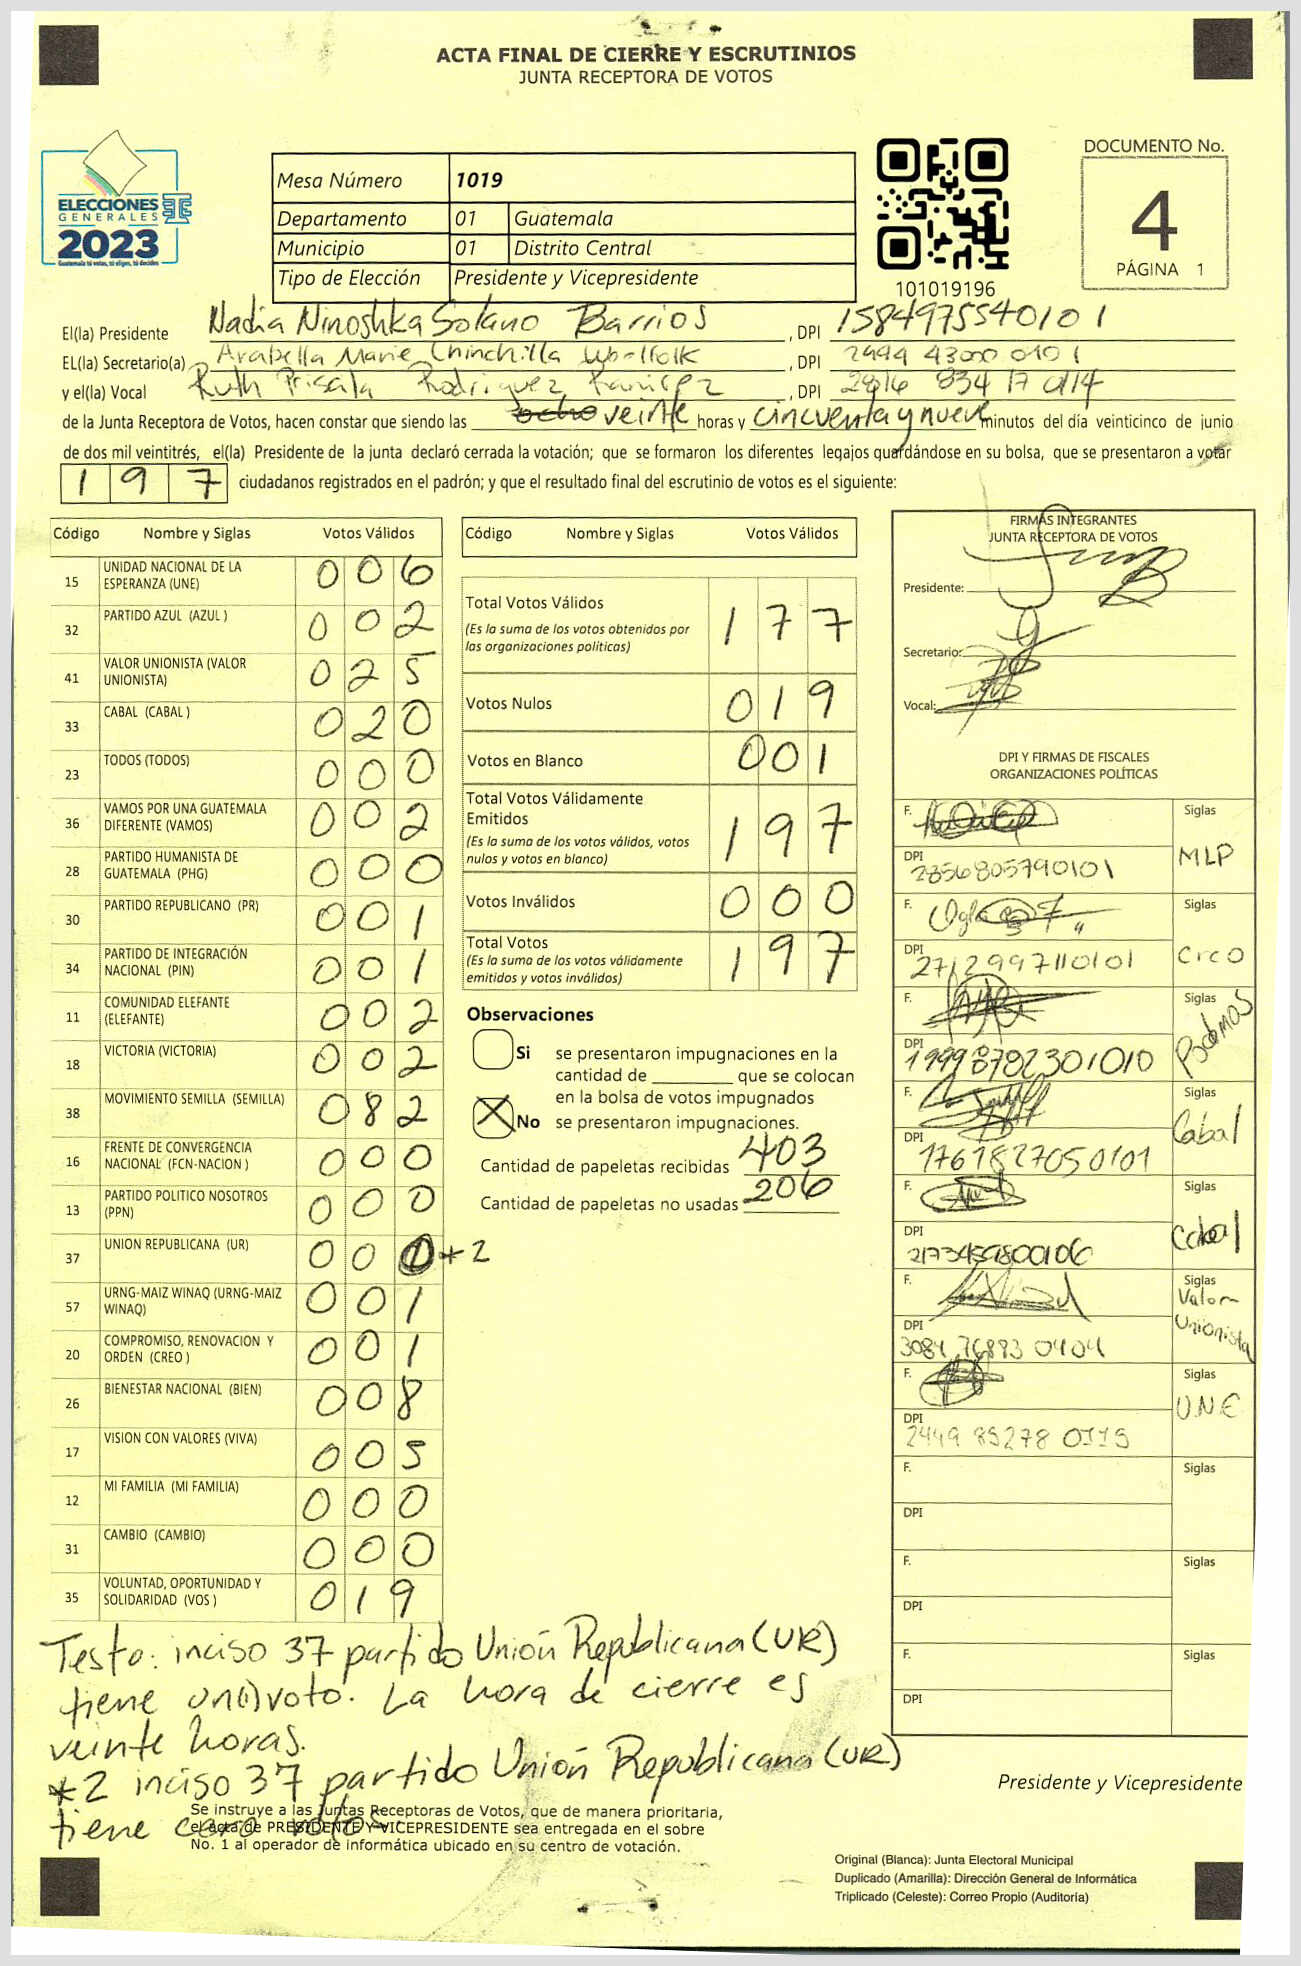 ACTA FINAL DE CIERRE Y ESCRUTINIOS
JUNTA RECEPTORA DE VOTOS
ELECCIONES
GENERALES
2023
Guatemala tú votas, tú eliges, tú decides
Mesa Número 1019
Departamento 01 Guatemala
Municipio 01 Distrito Central
Tipo de Elección Presidente y Vicepresidente
101019196
DOCUMENTO No.
4
PÁGINA 1
El(la) Presidente Nadia Ninoshka Solano Barrios, DPI 1584975540101
EL(la) Secretario(a) Arabella Marie Chinchilla, DPI 2994 43000 0101
y el(la) Vocal Ruth Priscila Rodriguez Ramirez, DPI 2816 834 17 0114
de la Junta Receptora de Votos, hacen constar que siendo las ocho veinte horas y cincuenta y nueve minutos del día veinticinco de junio
de dos mil veintitrés, el(la) Presidente de la junta declaró cerrada la votación; que se formaron los diferentes legajos guardándose en su bolsa, que se presentaron a votar
197 ciudadanos registrados en el padrón; y que el resultado final del escrutinio de votos es el siguiente:
Código Nombre y Siglas Votos Válidos
15 UNIDAD NACIONAL DE LA ESPERANZA (UNE) 006
32 PARTIDO AZUL (AZUL ) 002
41 VALOR UNIONISTA (VALOR UNIONISTA) 025
33 CABAL (CABAL ) 020
23 TODOS (TODOS) 000
36 VAMOS POR UNA GUATEMALA DIFERENTE (VAMOS) 002
28 PARTIDO HUMANISTA DE GUATEMALA (PHG) 000
30 PARTIDO REPUBLICANO (PR) 001
34 PARTIDO DE INTEGRACIÓN NACIONAL (PIN) 001
11 COMUNIDAD ELEFANTE (ELEFANTE) 002
18 VICTORIA (VICTORIA) 002
38 MOVIMIENTO SEMILLA (SEMILLA) 082
16 FRENTE DE CONVERGENCIA NACIONAL (FCN-NACION ) 000
13 PARTIDO POLITICO NOSOTROS (PPN) 000
37 UNION REPUBLICANA (UR) 000 *2
57 URNG-MAIZ WINAQ (URNG-MAIZ WINAQ) 001
20 COMPROMISO, RENOVACION Y ORDEN (CREO ) 001
26 BIENESTAR NACIONAL (BIEN) 008
17 VISION CON VALORES (VIVA) 005
12 MI FAMILIA (MI FAMILIA) 000
31 CAMBIO (CAMBIO) 000
35 VOLUNTAD, OPORTUNIDAD Y SOLIDARIDAD (VOS ) 019
Código Nombre y Siglas Votos Válidos
Total Votos Válidos 177
(Es la suma de los votos obtenidos por
las organizaciones políticas)
Votos Nulos 019
Votos en Blanco 001
Total Votos Válidamente
Emitidos 197
(Es la suma de los votos válidos, votos
nulos y votos en blanco)
Votos Inválidos 000
Total Votos 197
(Es la suma de los votos válidamente
emitidos y votos inválidos)
Observaciones
Si se presentaron impugnaciones en la
cantidad de ________ que se colocan
en la bolsa de votos impugnados
X No se presentaron impugnaciones.
Cantidad de papeletas recibidas 403
Cantidad de papeletas no usadas 206
FIRMAS INTEGRANTES
JUNTA RECEPTORA DE VOTOS
Presidente:
Secretario:
Vocal:
DPI Y FIRMAS DE FISCALES
ORGANIZACIONES POLÍTICAS
F. Siglas
DPI 2356805790101 MLP
F. Siglas
DPI 2712997110101 Creo
F. Siglas
DPI Podemos
F. Siglas
DPI 1761827050101 Cabal
F. Siglas
DPI Cabal
F. Siglas
DPI 3084 76893 0404 Valor Unionista
F. Siglas
DPI 2449 85278 0115 U.N.E
F. Siglas
DPI
F. Siglas
DPI
F. Siglas
DPI
Testo: inciso 37 partido Unión Republicana (UR)
tiene un(1) voto. La hora de cierre es
veinte horas.
*2 inciso 37 partido Unión Republicana (UR)
tiene cero votos
Se instruye a las Juntas Receptoras de Votos, que de manera prioritaria,
el acta de PRESIDENTE Y VICEPRESIDENTE sea entregada en el sobre
No. 1 al operador de informática ubicado en su centro de votación.
Presidente y Vicepresidente
Original (Blanca): Junta Electoral Municipal
Duplicado (Amarilla): Dirección General de Informática
Triplicado (Celeste): Correo Propio (Auditoría)